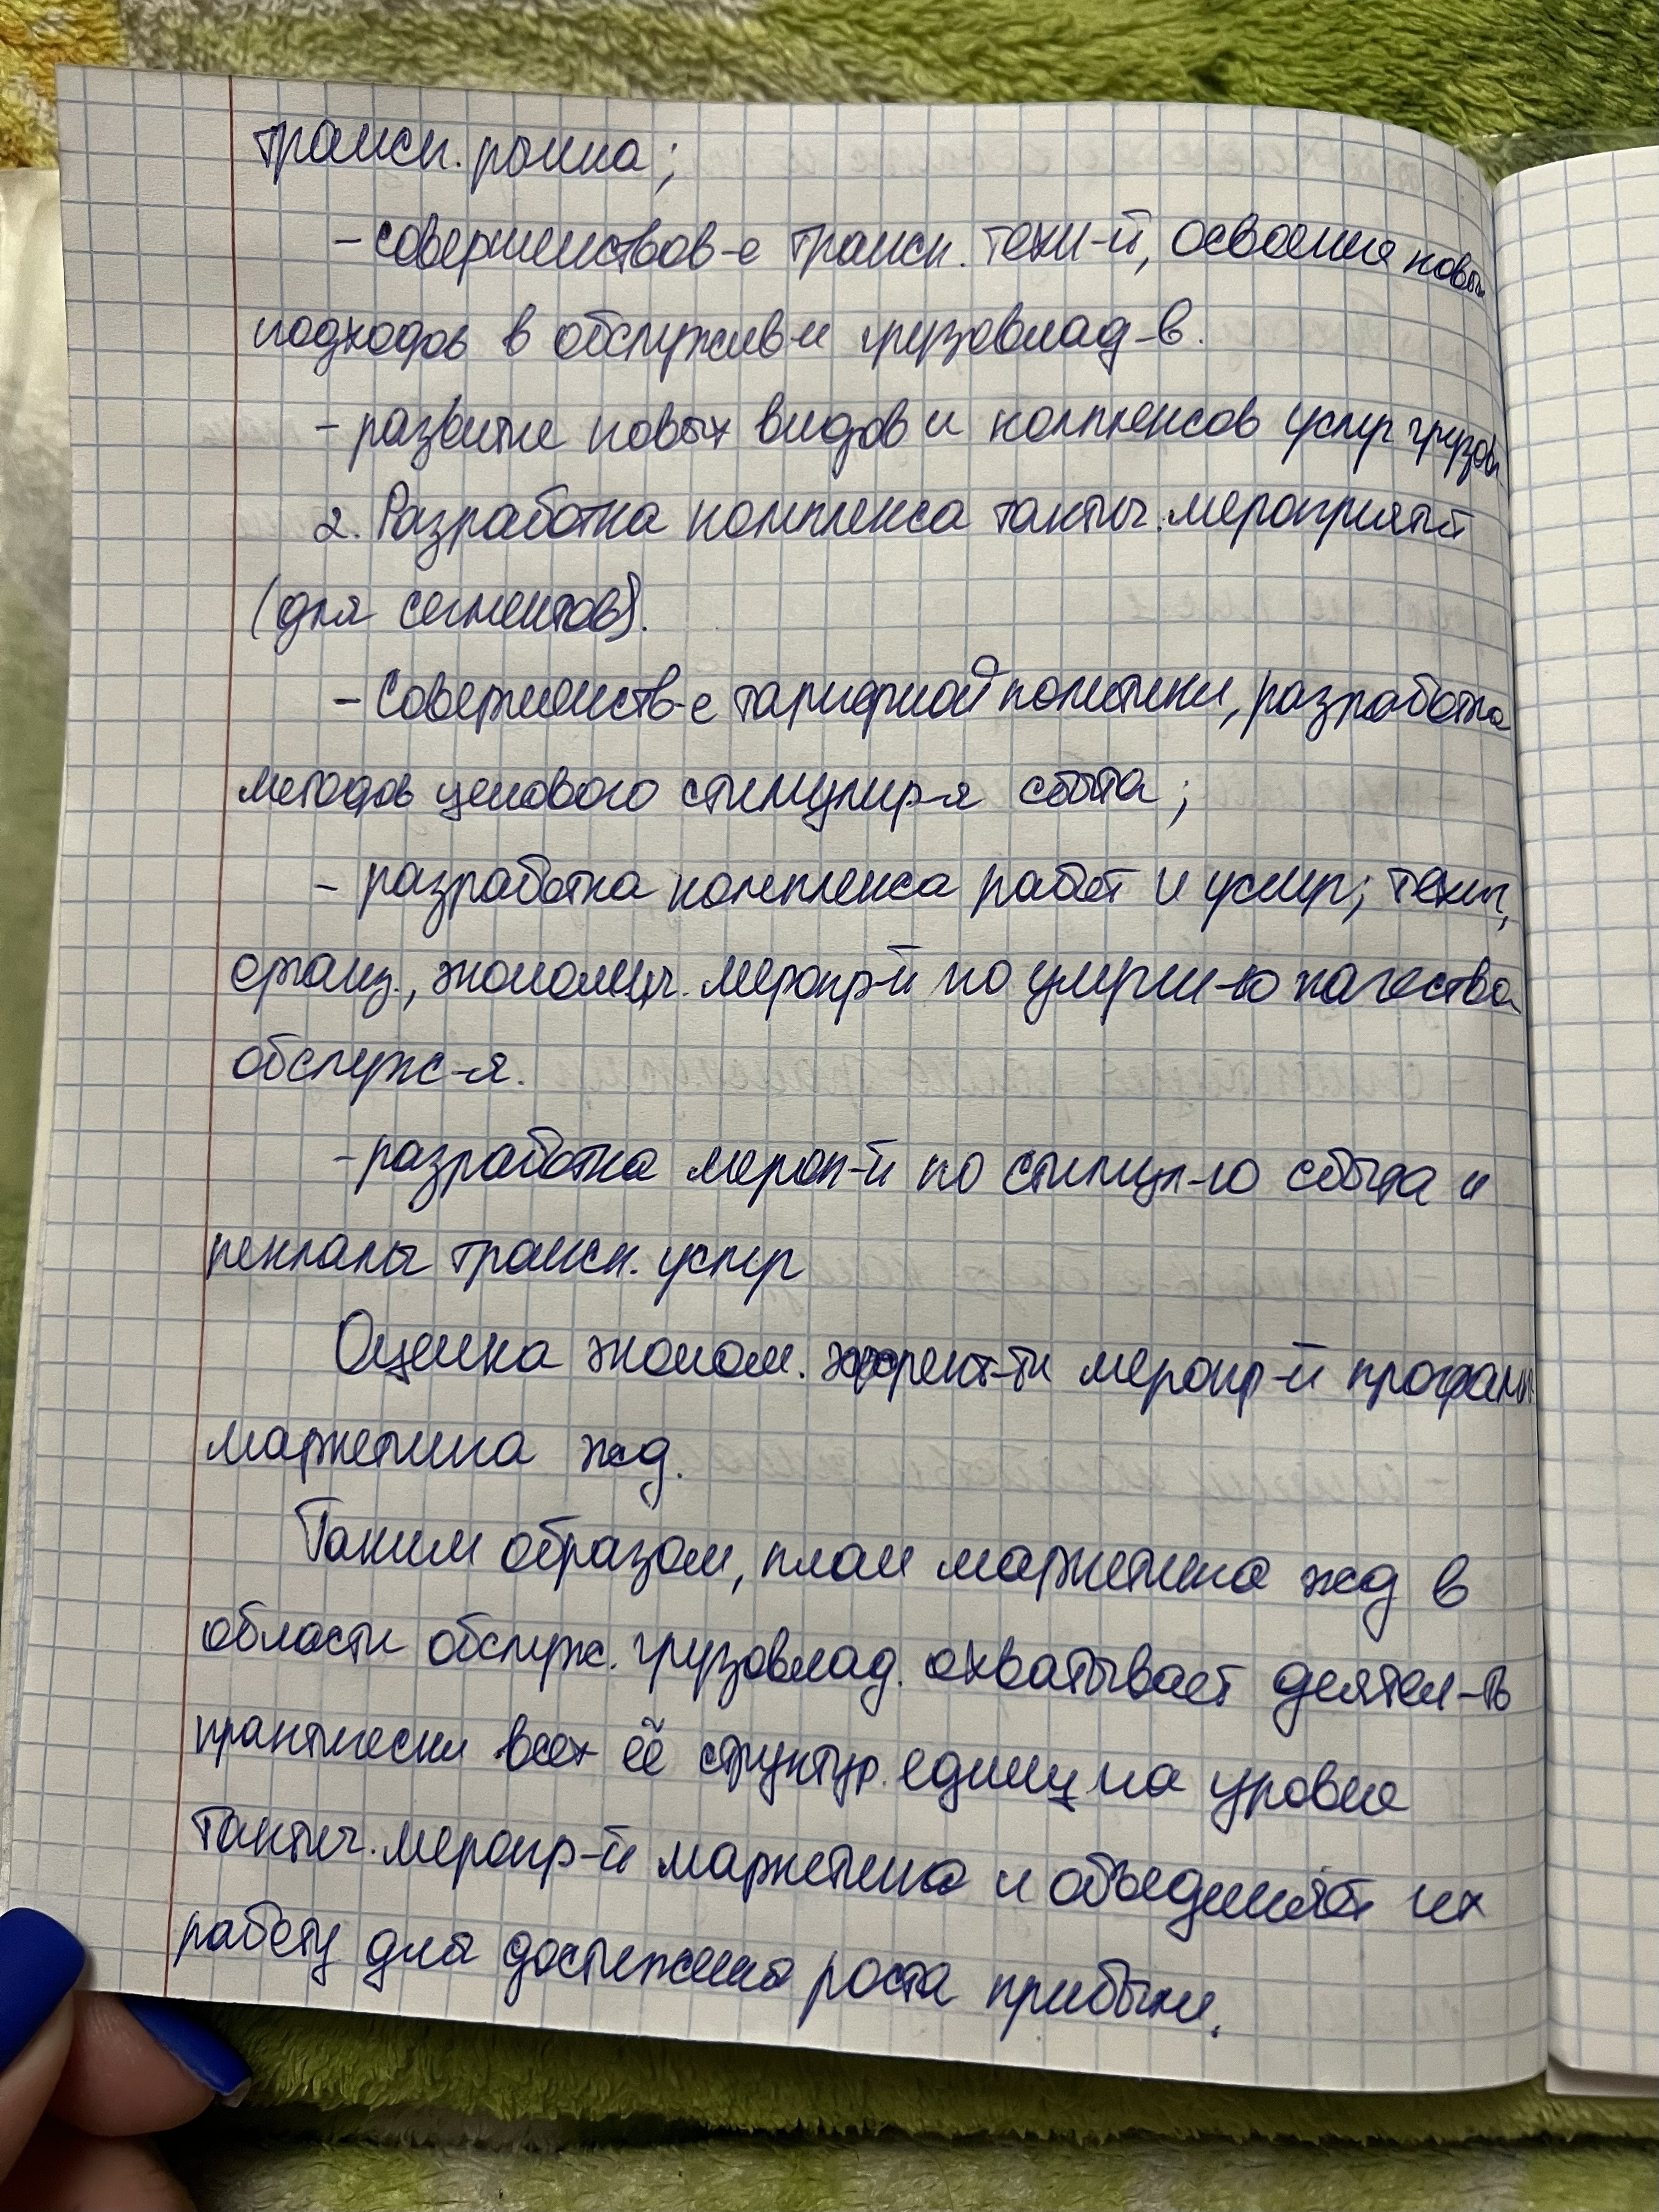 трансп. рынка;
- совершенствов-е трансп. техн-й, освоения новых
подходов в обслужив-и грузовлад-в.
- развитие новых видов и комплексов услуг грузовл
2. Разработка комплекса тактич. мероприятий
(для сегментов).
- Совершенств-е тарифной политики, разработка
методов ценового стимулир-я сбыта;
- разработка комплекса работ и услуг; технич,
организ., экономич. меропр-й по качества
обслуж-я.
- разработка мероп-й по стимул-ю сбыта и
рекламы трансп. услуг
Оценка эконом. эффект-ти меропр-й программы
маркетинга жд.
Таким образом, план маркетинга жд в
области обслуж. грузовлад. охватывает деятел-ть
практически всех её структур. единиц на уровне
тактич. меропр-й маркетинга и объединяет их
работу для достижения роста прибыли.